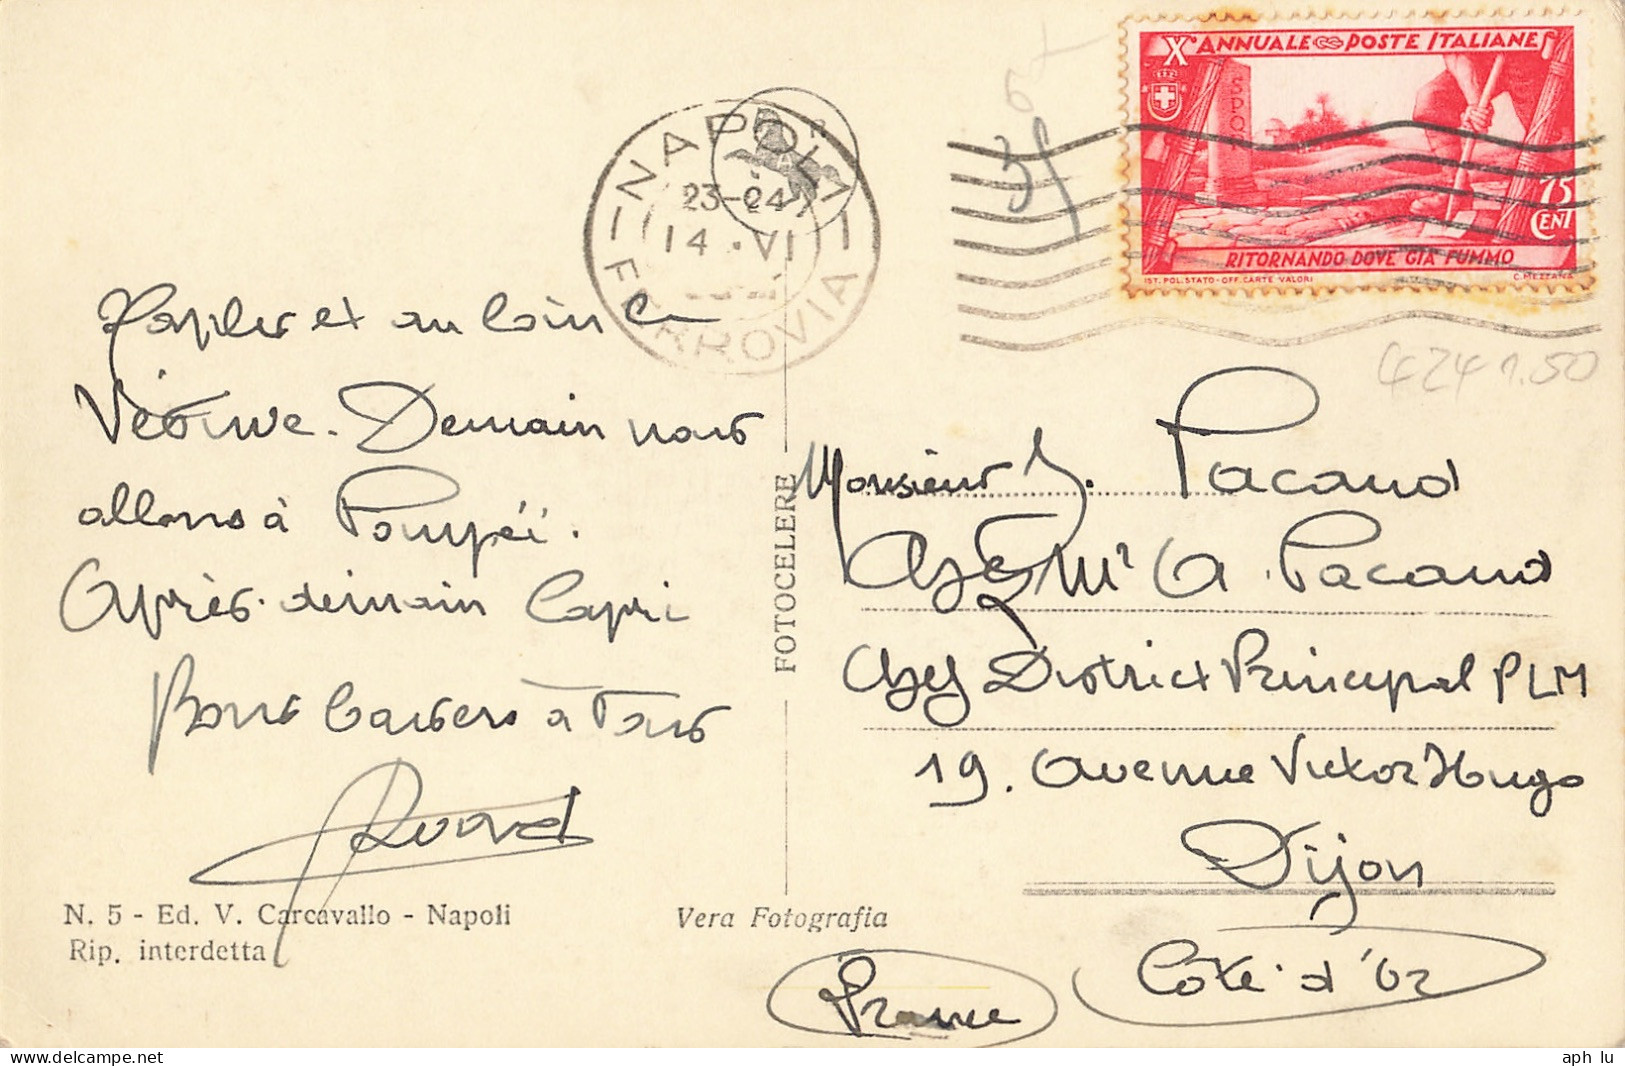 X ANNUALE POSTE ITALIANE
75
CENT
RITORNANDO DOVE GIÀ FUMMO
IST. POL. STATO - OFF. CARTE VALORI C. MEZZANA
NAPOLI
23-24
14 . VI
FERROVIA
4241.50
Naples et au loin le
Vésuve. Demain nous
allons à Pompéi.
Après-demain Capri
Bons baisers à tous
FOTOCELERE
Monsieur J. Pacaud
Chez Mr A. Pacaud
Chef District Principal PLM
19. Avenue Victor Hugo
Dijon
Côte-d'Or
France
N. 5 - Ed. V. Carcavallo - Napoli
Rip. interdetta
Vera Fotografia
aph lu